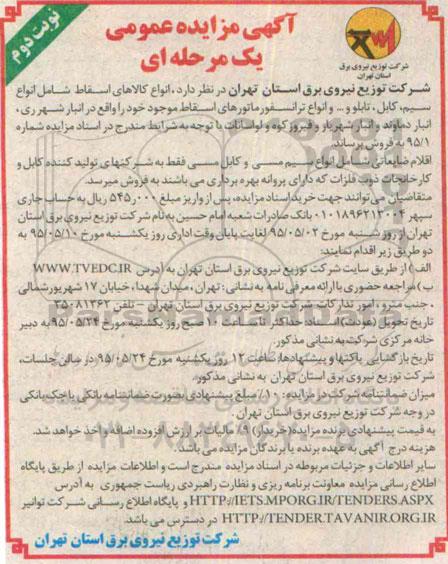 نوبت دوم
آگهی مزایده عمومی
یک مرحله ای
شرکت توزیع نیروی برق
استان تهران
شرکت توزیع نیروی برق استان تهران در نظر دارد ، انواع کالاهای اسقاط شامل انواع
سیم، کابل ، تابلو و ... و انواع ترانسفورماتورهای اسقاط موجود خود را واقع در انبار شهر ری ،
انبار دماوند و انبار شهریار و فیروزکوه و لواسانات با توجه به شرایط مندرج در اسناد مزایده شماره
۹۵/۱ به فروش برساند.
اقلام ضایعاتی شامل انواع سیم مسی و کابل مسی فقط به شرکتهای تولید کننده کابل و
کارخانجات ذوب فلزات که دارای پروانه بهره برداری می باشند به فروش میرسد.
متقاضیان می توانند جهت خرید اسناد مزایده، پس از واریز مبلغ ۵۴۵,۰۰۰ ریال به حساب جاری
سپهر ۰۱۰۱۸۹۶۲۱۳۰۰۴ بانک صادرات شعبه امام حسین به نام شرکت توزیع نیروی برق استان
تهران از روز شنبه مورخ ۹۵/۰۵/۰۲ لغایت پایان وقت اداری روز یکشنبه مورخ ۹۵/۰۵/۱۰ به
دو طریق زیر اقدام نمایند:
الف ) از طریق سایت شرکت توزیع نیروی برق استان تهران به آدرس WWW.TVEDC.IR
ب ) مراجعه حضوری با ارائه معرفی نامه به نشانی : تهران ، میدان شهدا ، خیابان ۱۷ شهریور شمالی
، جنب مترو ، امور تدارکات شرکت توزیع نیروی برق استان تهران – تلفن ۳۵۰۸۱۳۶۲
تاریخ تحویل (عودت) اسناد حداکثر تا ساعت ۱۰ صبح روز یکشنبه مورخ ۹۵/۰۵/۲۴ به دبیر
خانه مرکزی شرکت به نشانی مذکور.
تاریخ بازگشایی پاکتها و پیشنهادها: ساعت ۱۲ روز یکشنبه مورخ ۹۵/۰۵/۲۴ در سالن جلسات،
شرکت توزیع نیروی برق استان تهران به نشانی مذکور.
میزان ضمانتنامه شرکت در مزایده : ۱۰٪ مبلغ پیشنهادی بصورت ضمانتنامه بانکی یا چک بانکی
در وجه شرکت توزیع نیروی برق استان تهران
به قیمت پیشنهادی برنده مزایده (خریدار) ۹٪ مالیات بر ارزش افزوده اضافه و اخذ خواهد شد.
هزینه درج آگهی به عهده برنده یا برندگان مزایده می باشد.
سایر اطلاعات و جزئیات مربوطه در اسناد مزایده مندرج است و اطلاعات مزایده از طریق پایگاه
اطلاع رسانی مزایده معاونت برنامه ریزی و نظارت راهبردی ریاست جمهوری به آدرس
HTTP://IETS.MPORG.IR/TENDERS.ASPX و پایگاه اطلاع رسانی شرکت توانیر
HTTP://TENDER.TAVANIR.ORG.IR در دسترس می باشد.
شرکت توزیع نیروی برق استان تهران